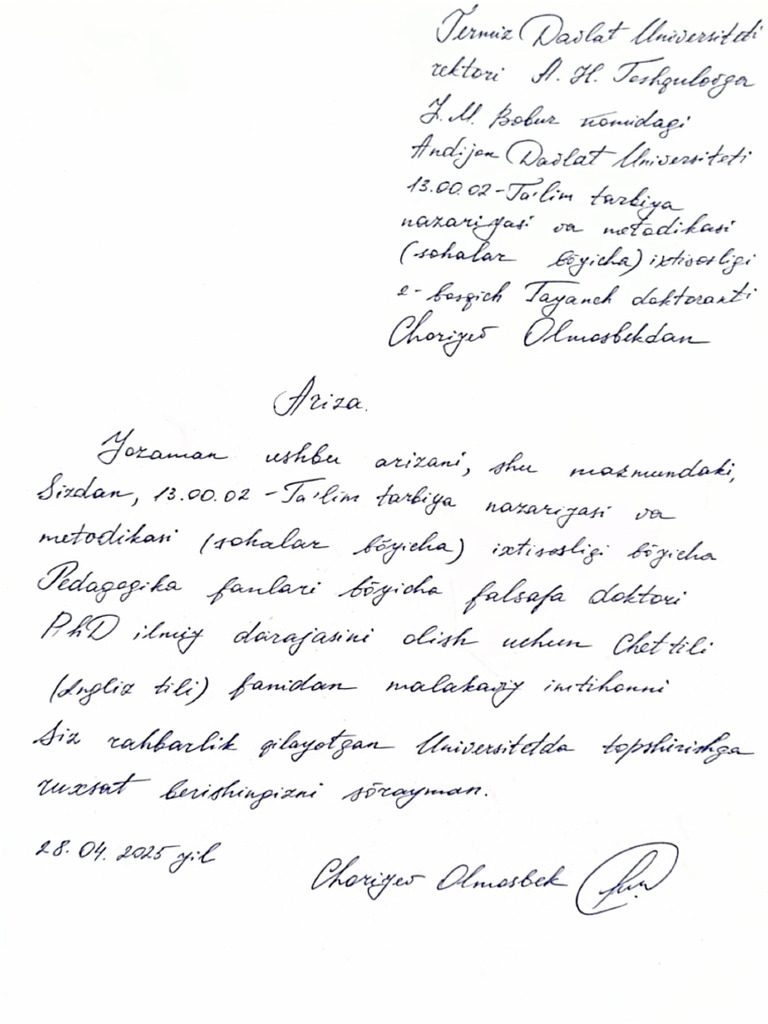 Termiz Davlat Universiteti
rektori A. H. Toshqulovga
Z. M. Bobur nomidagi
Andijon Davlat Universiteti
13.00.02 - Ta'lim tarbiya
nazariyasi va metodikasi
(sohalar bōyicha) ixtisosligi
2 - bosqich Tayanch doktoranti
Choriyev Olmosbekdan
Ariza.
Yozaman ushbu arizani, shu mazmundaki,
Sizdan, 13.00.02 - Ta'lim tarbiya nazariyasi va
metodikasi (sohalar bōyicha) ixtisosligi bōyicha
Pedagogika fanlari bōyicha falsafa doktori
PhD ilmiy darajasini olish uchun Chet tili
(Ingliz tili) fanidan malakaviy imtihonni
Siz rahbarlik qilayotgan Universitetda topshirishga
ruxsat berishingizni sōrayman.
28.04.2025 yil
Choriyev Olmosbek